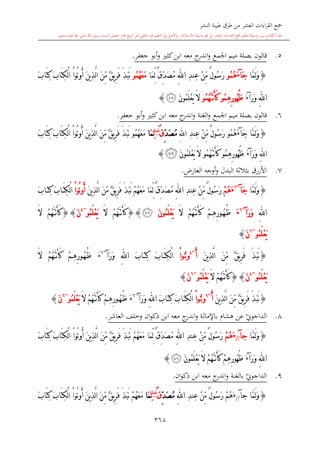 جمع القراءات العشر من طرق طيبة النشر
٥. قالون بصلة ميم الجمع واندرج معه ابن كثير وأبو جعفر.
﴿ وَلَمَّا جَآءَهُمُۥ رَسُولٌ مِّنْ عِندِ اللهِ مُصَدِّقٌ لِّمَا مَعَهُمُۥ نَبَذَ فَرِيقٌ مِّنَ الَّذِينَ أُوتُوا۟ الْكِتَابَ كِتَابَ
اللهِ وَرَآءَ ظُهُورِهِمُۥ كَأَنَّهُمُۥ لَا يَعْلَمُونَ ﴾
٦. قالون بصلة ميم الجمع والغنة واندرج معه ابن كثير وأبو جعفر.
﴿ وَلَمَّا جَآءَهُمُۥ رَسُولٌ مِّنْ عِندِ اللهِ مُصَدِّقٌ لِّمَا مَعَهُمُۥ نَبَذَ فَرِيقٌ مِّنَ الَّذِينَ أُوتُوا۟ الْكِتَابَ كِتَابَ
اللهِ وَرَآءَ ظُهُورِهِمُۥ كَأَنَّهُمُۥ لَا يَعْلَمُونَ ﴾
٧. الأزرق بثلاثة البدل وأوجه العارض.
﴿ وَلَمَّا جَآءَهُمْ رَسُولٌ مِّنْ عِندِ اللهِ مُصَدِّقٌ لِّمَا مَعَهُمْ نَبَذَ فَرِيقٌ مِّنَ الَّذِينَ أُوتُوا۟ الْكِتَابَ كِتَابَ
اللهِ وَرَآءَ ظُهُورِهِمْ كَأَنَّهُمْ لَا يَعْلَمُونَ ﴾ ﴿ كَأَنَّهُمْ لَا يَعْلَمُونَ ﴾ ﴿ كَأَنَّهُمْ لَا
يَعْلَمُونَ ﴾
﴿ نَبَذَ فَرِيقٌ مِّنَ الَّذِينَ أُوتُوا۟ الْكِتَابَ كِتَابَ اللهِ وَرَآءَ ظُهُورِهِمْ كَأَنَّهُمْ لَا
يَعْلَمُونَ ﴾ ﴿ كَأَنَّهُمْ لَا يَعْلَمُونَ ﴾
﴿ نَبَذَ فَرِيقٌ مِّنَ الَّذِينَ أُوتُوا۟ الْكِتَابَ كِتَابَ اللهِ وَرَآءَ ظُهُورِهِمْ كَأَنَّهُمْ لَا يَعْلَمُونَ ﴾
٨. الداجوني عن هشام بالإمالة واندرج معه ابن ذكوان وخلف العاشر.
﴿ وَلَمَّا جَآءَهُمْ رَسُولٌ مِّنْ عِندِ اللهِ مُصَدِّقٌ لِّمَا مَعَهُمْ نَبَذَ فَرِيقٌ مِّنَ الَّذِينَ أُوتُوا۟ الْكِتَابَ كِتَابَ
اللهِ وَرَآءَ ظُهُورِهِمْ كَأَنَّهُمْ لَا يَعْلَمُونَ ﴾
٩. الداجوني بالغنة واندرج معه ابن ذكوان.
﴿ وَلَمَّا جَآءَهُمْ رَسُولٌ مِّنْ عِندِ اللهِ مُصَدِّقٌ لِّمَا مَعَهُمْ نَبَذَ فَرِيقٌ مِّنَ الَّذِينَ أُوتُوا۟ الْكِتَابَ كِتَابَ
٣٦٨